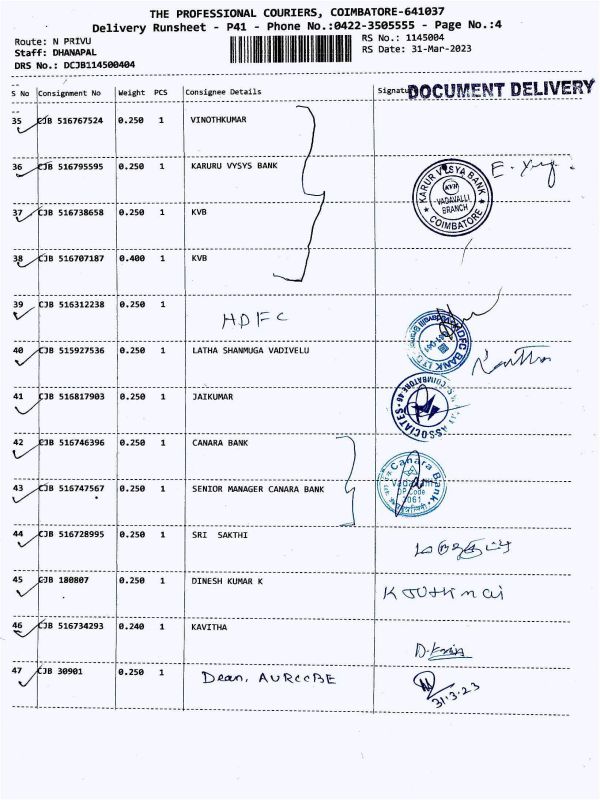 THE PROFESSIONAL COURIERS, COIMBATORE-641037
Delivery Runsheet - P41 - Phone No.:0422-3505555 - Page No.:4
Route: N PRIVU
Staff: DHANAPAL
DRS No.: DCJB114500404
RS No.: 1145004
RS Date: 31-Mar-2023
S No Consignment No Weight PCS Consignee Details Signature
DOCUMENT DELIVERY
35 CJB 516767524 0.250 1 VINOTHKUMAR
36 CJB 516795595 0.250 1 KARURU VYSYS BANK
KARUR VYSYA BANK
KVB
VADAVALLI
BRANCH
COIMBATORE
37 CJB 516738658 0.250 1 KVB
38 CJB 516707187 0.400 1 KVB
39 CJB 516312238 0.250 1 HDFC
HDFC BANK LTD.
40 CJB 515927536 0.250 1 LATHA SHANMUGA VADIVELU
41 CJB 516817903 0.250 1 JAIKUMAR
ASSOCIATES
COIMBATORE
42 CJB 516746396 0.250 1 CANARA BANK
Canara Bank
43 CJB 516747567 0.250 1 SENIOR MANAGER CANARA BANK
DP Code
44 CJB 516728995 0.250 1 SRI SAKTHI
45 CJB 180807 0.250 1 DINESH KUMAR K
46 CJB 516734293 0.240 1 KAVITHA
47 CJB 30901 0.250 1 Dean, AURCCBE
31.3.23